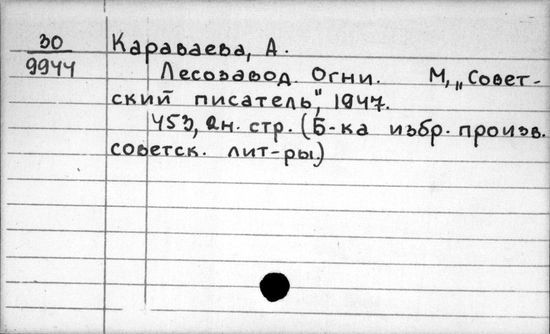 30 Караваева, А.
9944 Лесозавод. Огни. М, „Совет-
ский писатель", 1947.
453, 2н. стр. (Б-ка избр. произв.
советск. лит-ры.)